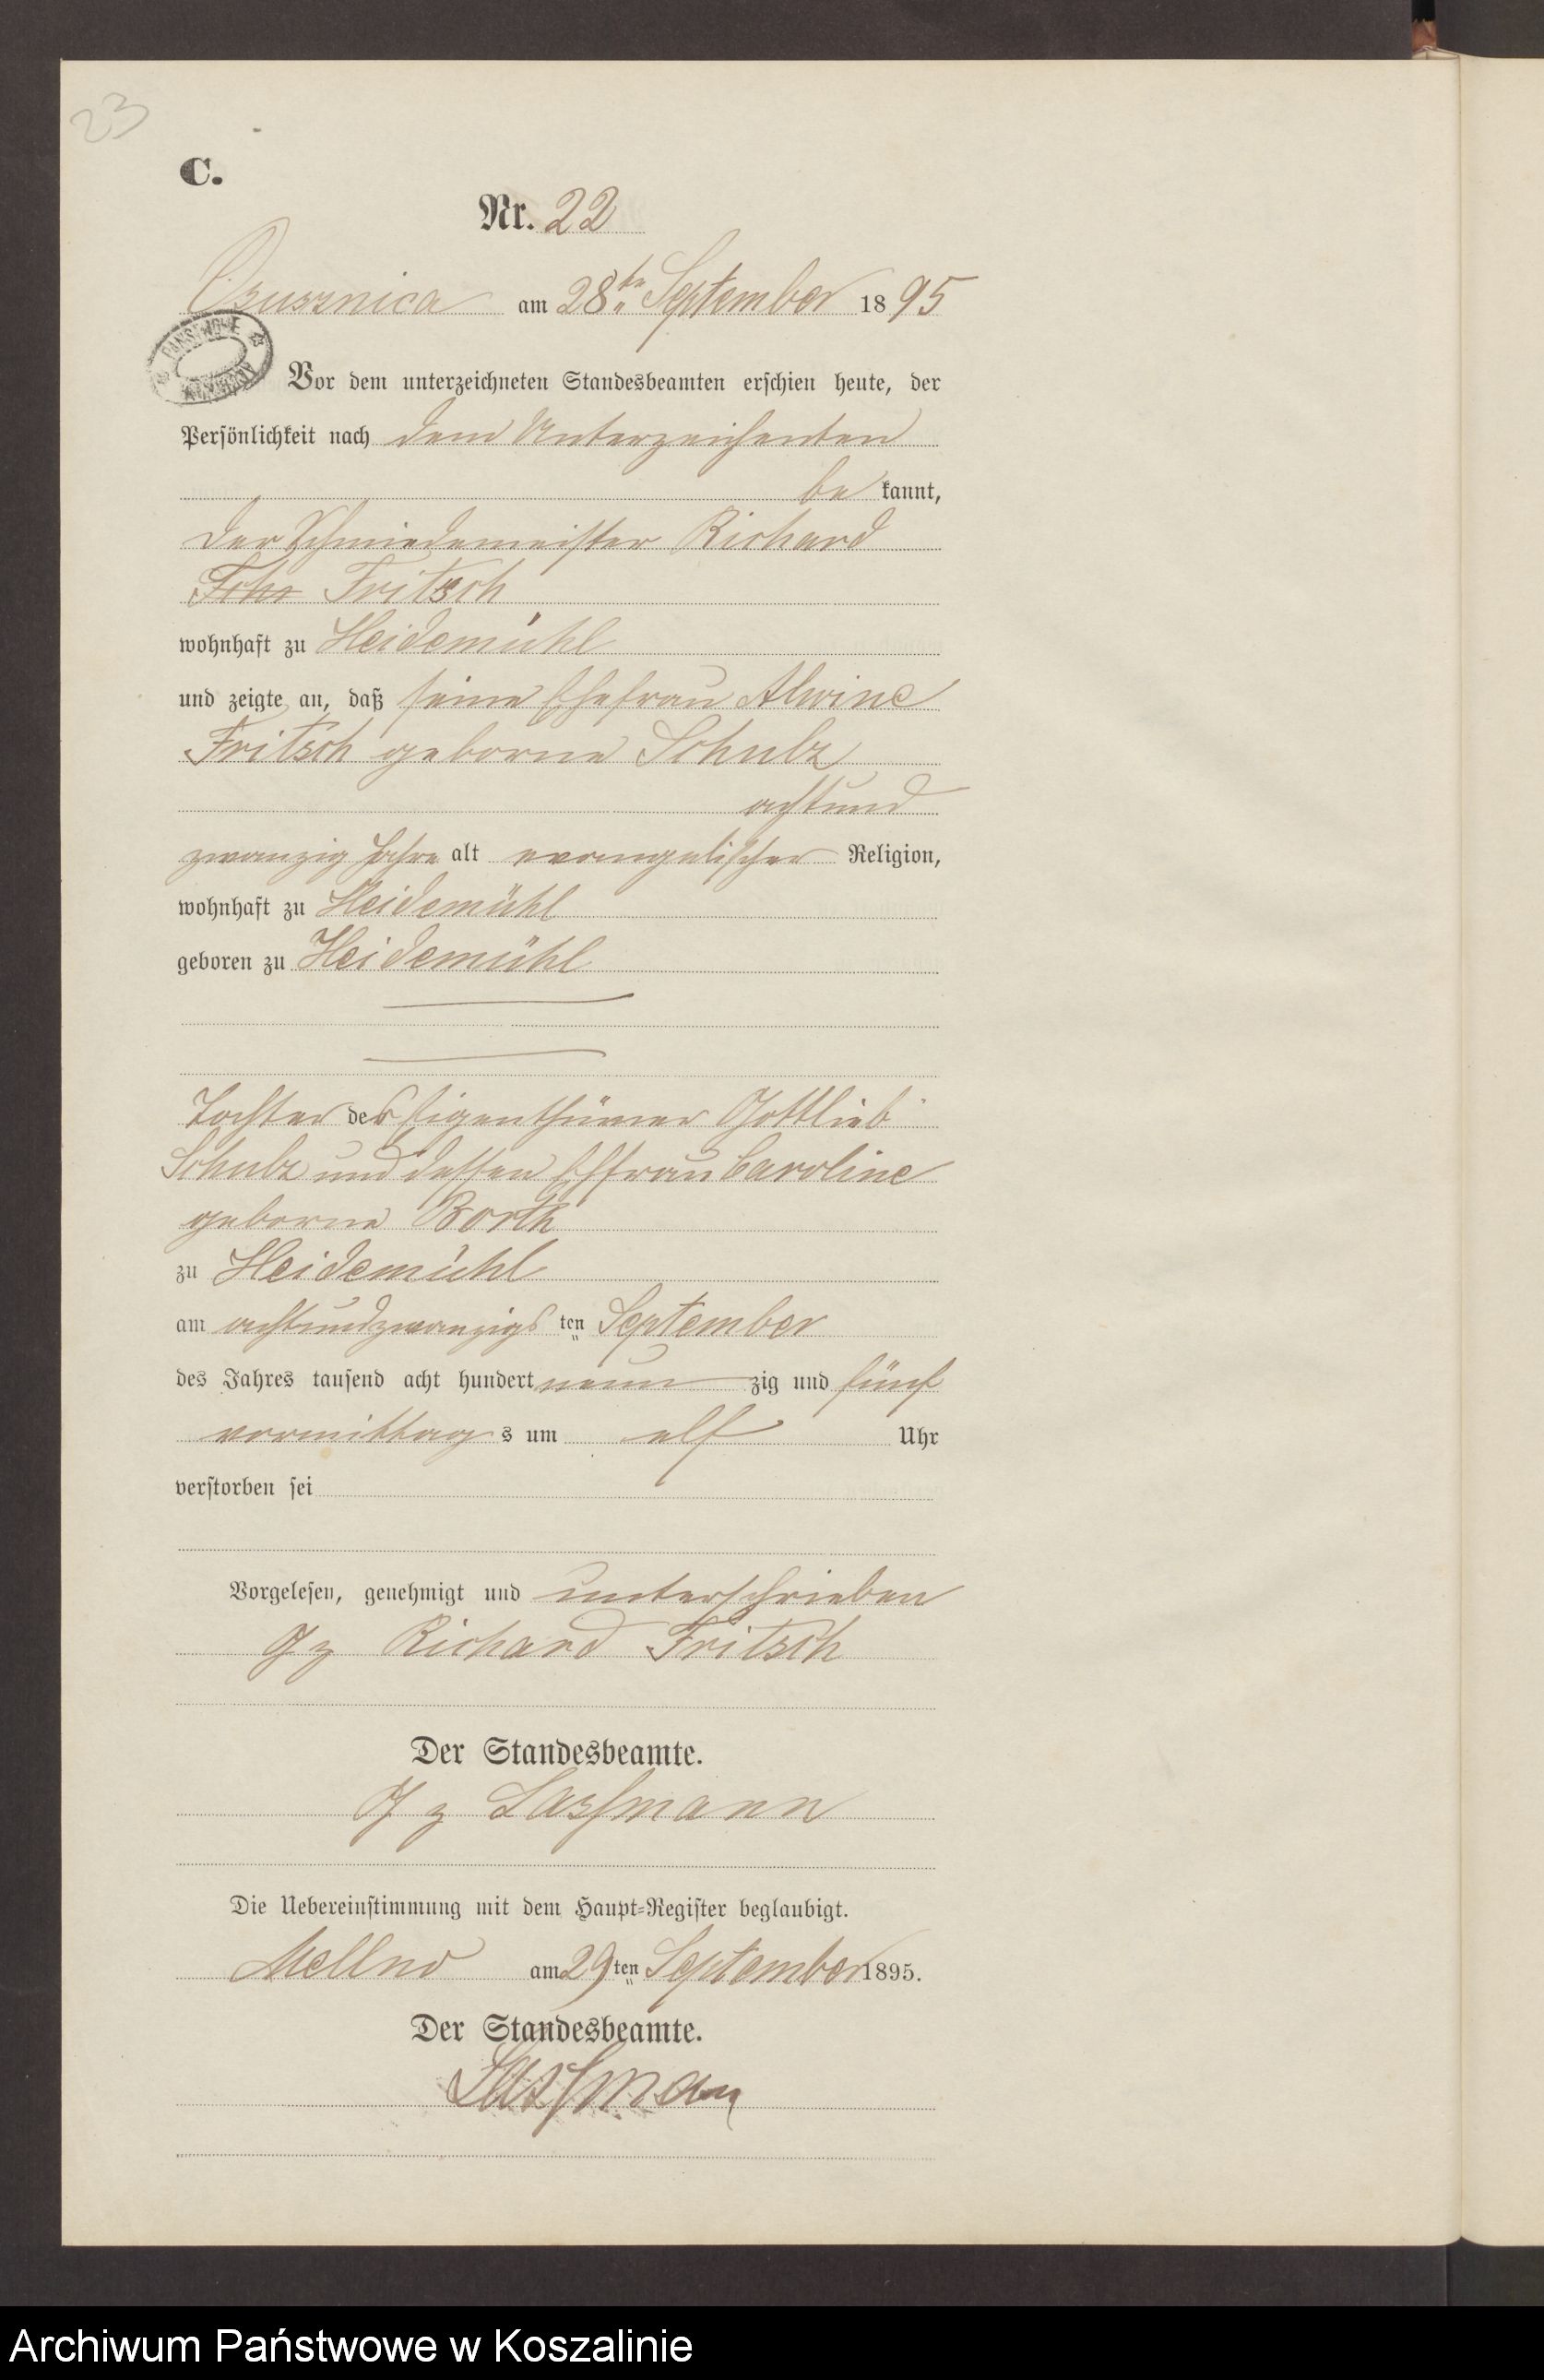 23
C.
Nr. 22
am 28ten September 1895
PAŃSTWOWE
Vor dem unterzeichneten Standesbeamten erschien heute, der
Persönlichkeit nach dem Unterzeichenten
be kannt,
der Schmiedemeister Richard
Fritsch
wohnhaft zu Heidemühl
und zeigte an, daß seine Ehefrau Alwine
Fritsch geborne Schulz
achtund
zwanzig Jahre alt evangelischer Religion,
wohnhaft zu Heidemühl
geboren zu Heidemühl
Tochter des Eigenthümer Gottlieb
Schulz und dessen Ehfrau Caroline
geborne Borth
zu Heidemühl
am achtundzwanzigsten September
des Jahres tausend acht hundert neunzig und fünf
vormittags um elf Uhr
verstorben sei
Vorgelesen, genehmigt und unterschrieben
Gz Richard Fritsch
Der Standesbeamte.
Gz Lassmann
Die Uebereinstimmung mit dem Haupt-Register beglaubigt.
Mellno am 29ten September 1895.
Der Standesbeamte.
Lassmann
Archiwum Państwowe w Koszalinie